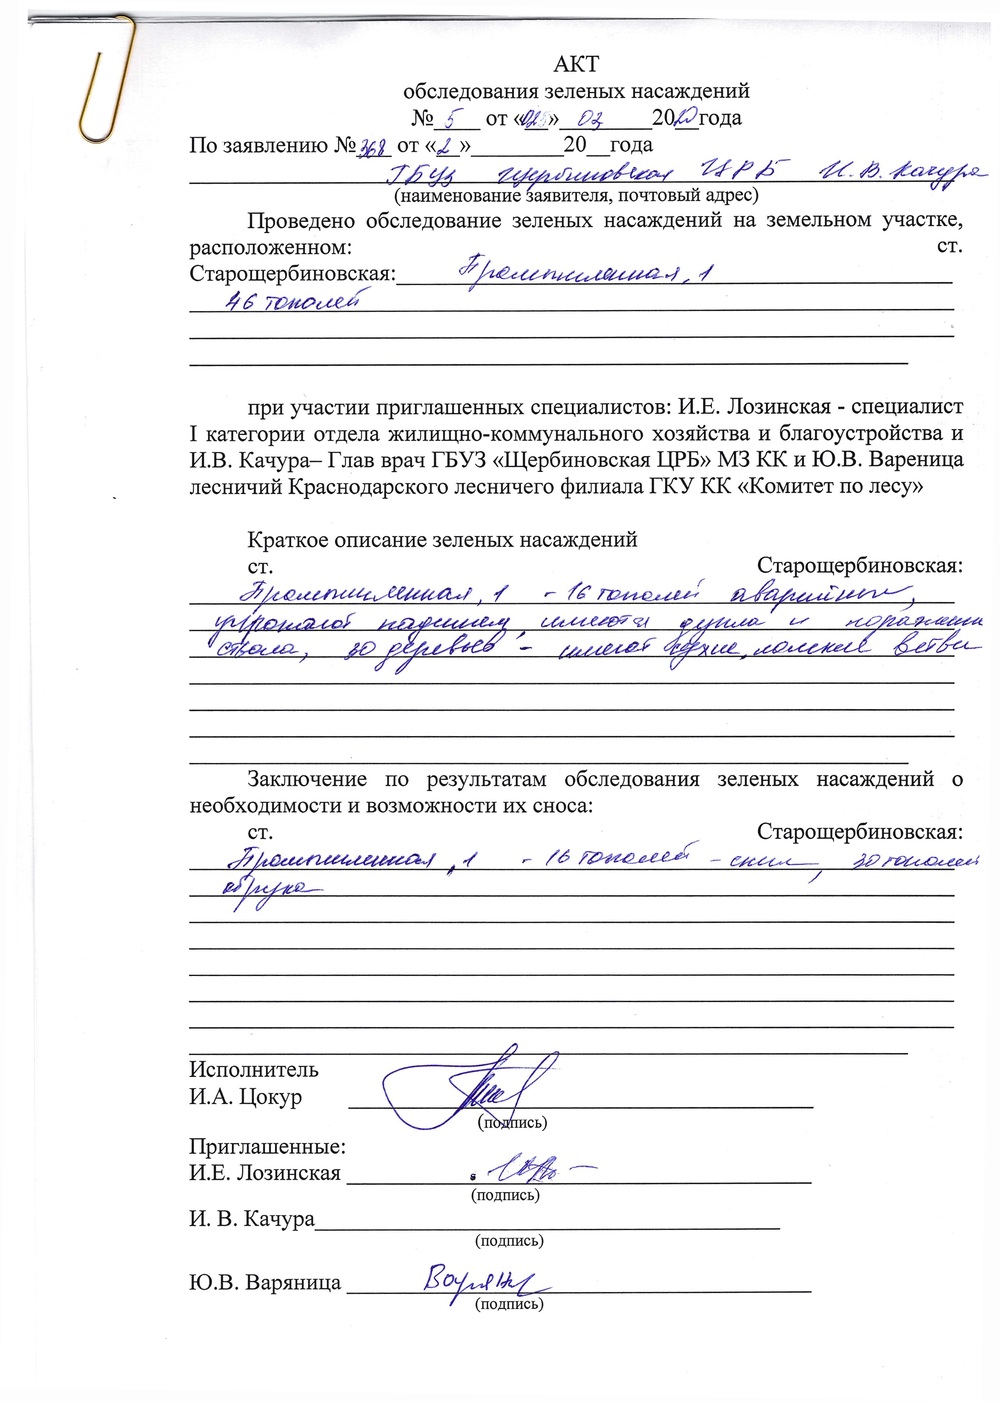 АКТ
обследования зеленых насаждений
№ 5 от «02» 03 2020 года
По заявлению № 368 от «2»________20__года
ГБУЗ Щербиновская ЦРБ И.В. Качура
(наименование заявителя, почтовый адрес)
Проведено обследование зеленых насаждений на земельном участке,
расположенном: ст.
Старощербиновская: Промышленная, 1
46 тополей
при участии приглашенных специалистов: И.Е. Лозинская - специалист
I категории отдела жилищно-коммунального хозяйства и благоустройства и
И.В. Качура– Глав врач ГБУЗ «Щербиновская ЦРБ» МЗ КК и Ю.В. Вареница
лесничий Краснодарского лесничего филиала ГКУ КК «Комитет по лесу»
Краткое описание зеленых насаждений
ст. Старощербиновская:
Промышленная, 1 - 16 тополей аварийные,
угрожают падением, имеются дупла и поражения
ствола, 30 деревьев - имеют сухие, ломкие ветви
Заключение по результатам обследования зеленых насаждений о
необходимости и возможности их сноса:
ст. Старощербиновская:
Промышленная, 1 - 16 тополей - спил, 30 тополей
обрезка
Исполнитель
И.А. Цокур
(подпись)
Приглашенные:
И.Е. Лозинская
(подпись)
И. В. Качура
(подпись)
Ю.В. Варяница
(подпись)